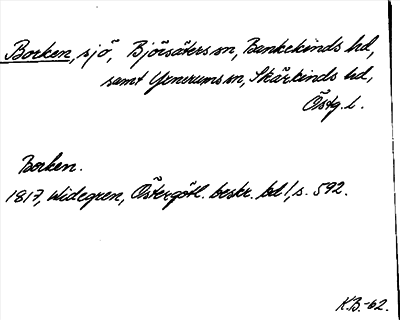 Borken, sjö, Björsäters sn, Bankekinds hd,
samt Yxnerums sn, Skärkinds hd,
Östg. l.
Borken.
1817, Widegren, Östergötl. beskr. bd 1, s. 592.
K.B.-62.